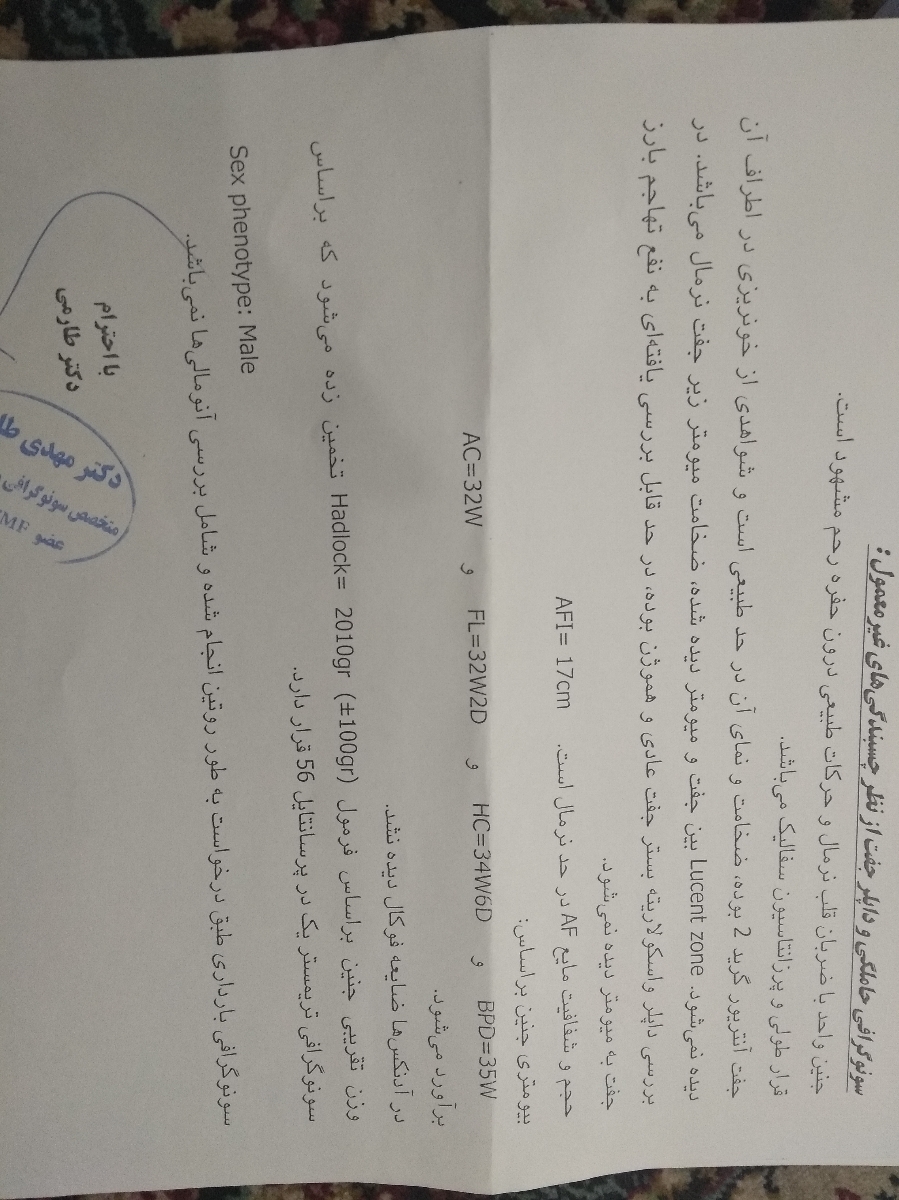 سونوگرافی حاملگی و داپلر جفت از نظر چسبندگی‌های غیرمعمول:
جنین واحد با ضربان قلب نرمال و حرکات طبیعی درون حفره رحم مشهود است.
قرار طولی و پرزانتاسیون سفالیک می‌باشد.
جفت آنتریور گرید 2 بوده، ضخامت و نمای آن در حد طبیعی است و شواهدی از خونریزی در اطراف آن
دیده نمی‌شود. Lucent zone بین جفت و میومتر دیده شده، ضخامت میومتر زیر جفت نرمال می‌باشد. در
بررسی داپلر واسکولاریته بستر جفت عادی و هموژن بوده، در حد قابل بررسی یافته‌ای به نفع تهاجم بارز
جفت به میومتر دیده نمی‌شود.
حجم و شفافیت مایع AF در حد نرمال است. AFI= 17cm
بیومتری جنین براساس:
BPD=35W و HC=34W6D و FL=32W2D و AC=32W
برآورد می‌شود.
در آدنکس‌ها ضایعه فوکال دیده نشد.
وزن تقریبی جنین براساس فرمول Hadlock= 2010gr (±100gr) تخمین زده می‌شود که براساس
سونوگرافی تریمستر یک در پرسانتایل 56 قرار دارد.
Sex phenotype: Male
سونوگرافی بارداری طبق درخواست به طور روتین انجام شده و شامل بررسی آنومالی‌ها نمی‌باشد.
با احترام
دکتر طارمی
دکتر مهدی
متخصص سونوگرافی
عضو